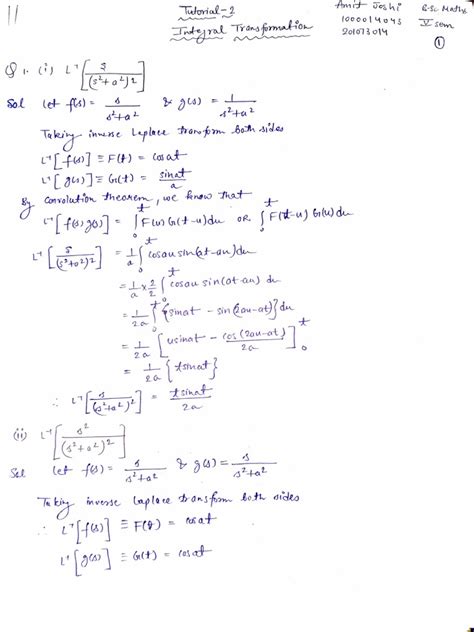 11
Tutorial-2
Integral Transformation
Amit Joshi
1000014043
201013014
B.Sc Maths
V sem
①
Q 1. (i) L⁻¹[s/(s²+a²)²]
Sol Let f(s) = s/(s²+a²) & g(s) = 1/(s²+a²)
Taking inverse Laplace transform both sides
L⁻¹[f(s)] ≡ F(t) = cosat
L⁻¹[g(s)] ≡ G(t) = sinat/a
By convolution theorem, we know that
L⁻¹[f(s) g(s)] = ∫₀ᵗ F(u) G(t-u)du OR ∫₀ᵗ F(t-u) G(u)du
L⁻¹[s/(s²+a²)²] = 1/a ∫₀ᵗ cosau sin(at-au)du
= 1/a × 2/2 ∫₀ᵗ cosau sin(at-au) du
= 1/2a ∫₀ᵗ {sinat - sin(2au-at)}du
= 1/2a [usinat - cos(2au-at)/2a]₀ᵗ
= 1/2a {tsinat}
∴ L⁻¹[s/(s²+a²)²] = tsinat/2a
(ii) L⁻¹[s²/(s²+a²)²]
Sol Let f(s) = s/(s²+a²) & g(s) = s/(s²+a²)
Taking inverse Laplace transform both sides
∴ L⁻¹[f(s)] ≡ F(t) = cosat
L⁻¹[g(s)] ≡ G(t) = cosat